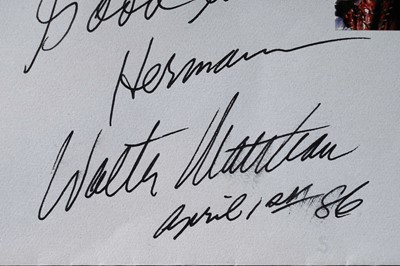 Good
Hermann
Walter Matthau
April 1st 86